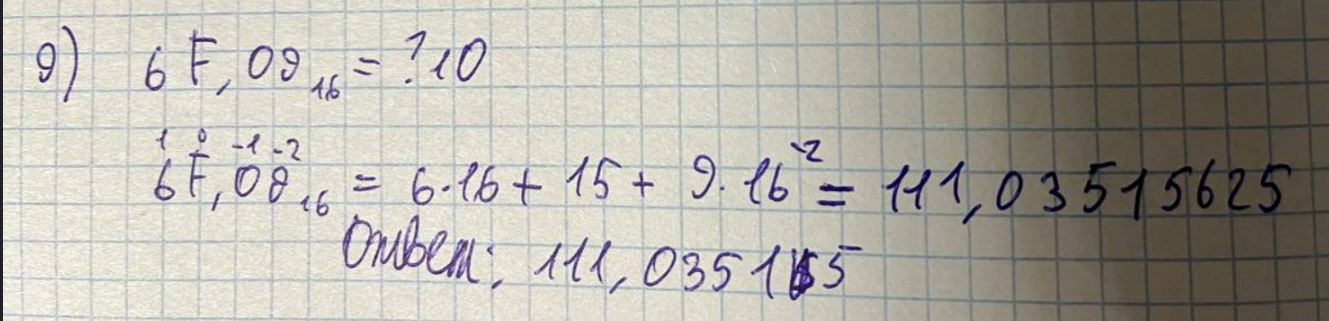 9) 6F,09₁₆ = ?10
1 0 -1 -2
6F,09₁₆ = 6·16 + 15 + 9·16⁻² = 111,03515625
Ответ: 111,03515